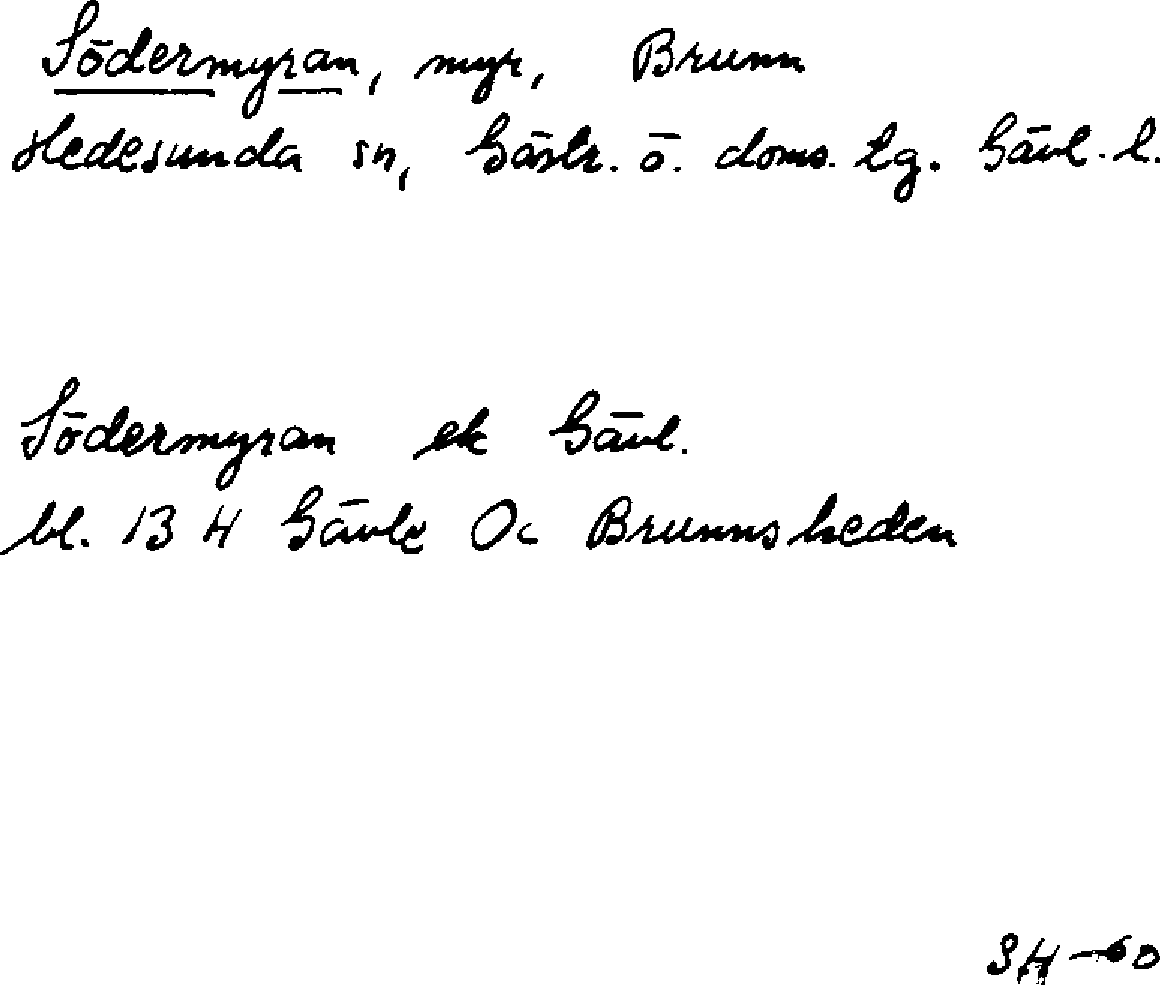 Södermyran, myr, Brunn
Hedesunda sn, Gästr. ö. doms. tg. Gävl. l.
Södermyran ek Gävl.
bl. 13 H Gävle Oc Brunnsheden
SH-60